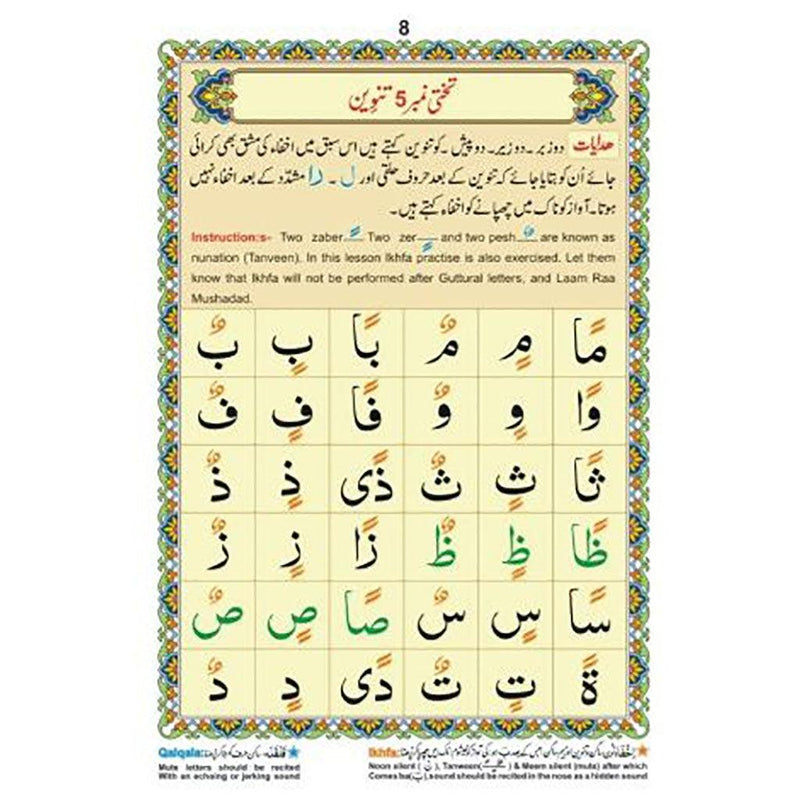 8
تختی نمبر 5 تنوین
ھدایات دو زبر۔ دو زیر۔ دو پیش۔ کو تنوین کہتے ہیں اس سبق میں اخفاء کی مشق بھی کرائی
جائے اُن کو بتایا جائے کہ تنوین کے بعد حروف حلقی اور ل۔ را مشدّد کے بعد اخفاء نہیں
ہوتا۔ آواز کو ناک میں چھپانے کو اخفاء کہتے ہیں۔
Instruction:s- Two zaber ـً Two zer ـٍ and two pesh ـٌ are known as
nunation (Tanveen). In this lesson Ikhfa practise is also exercised. Let them
know that Ikhfa will not be performed after Guttural letters, and Laam Raa
Mushadad.
مًا مٍ مٌ بًا بٍ بٌ
وًا وٍ وٌ فًا فٍ فٌ
ثًا ثٍ ثٌ ذًی ذٍ ذٌ
ظًا ظٍ ظٌ زًا زٍ زٌ
سًا سٍ سٌ صًا صٍ صٌ
ةً تٍ تٌ دًی دٍ دٌ
Ikhfa:
Noon silent (نْ), Tanween (ـًـٍـٌ) & Meem silent (mute) after which
Comes ba(بَ), sound should be recited in the nose as a hidden sound
Qalqala:
Mute letters should be recited
With an echoing or jerking sound